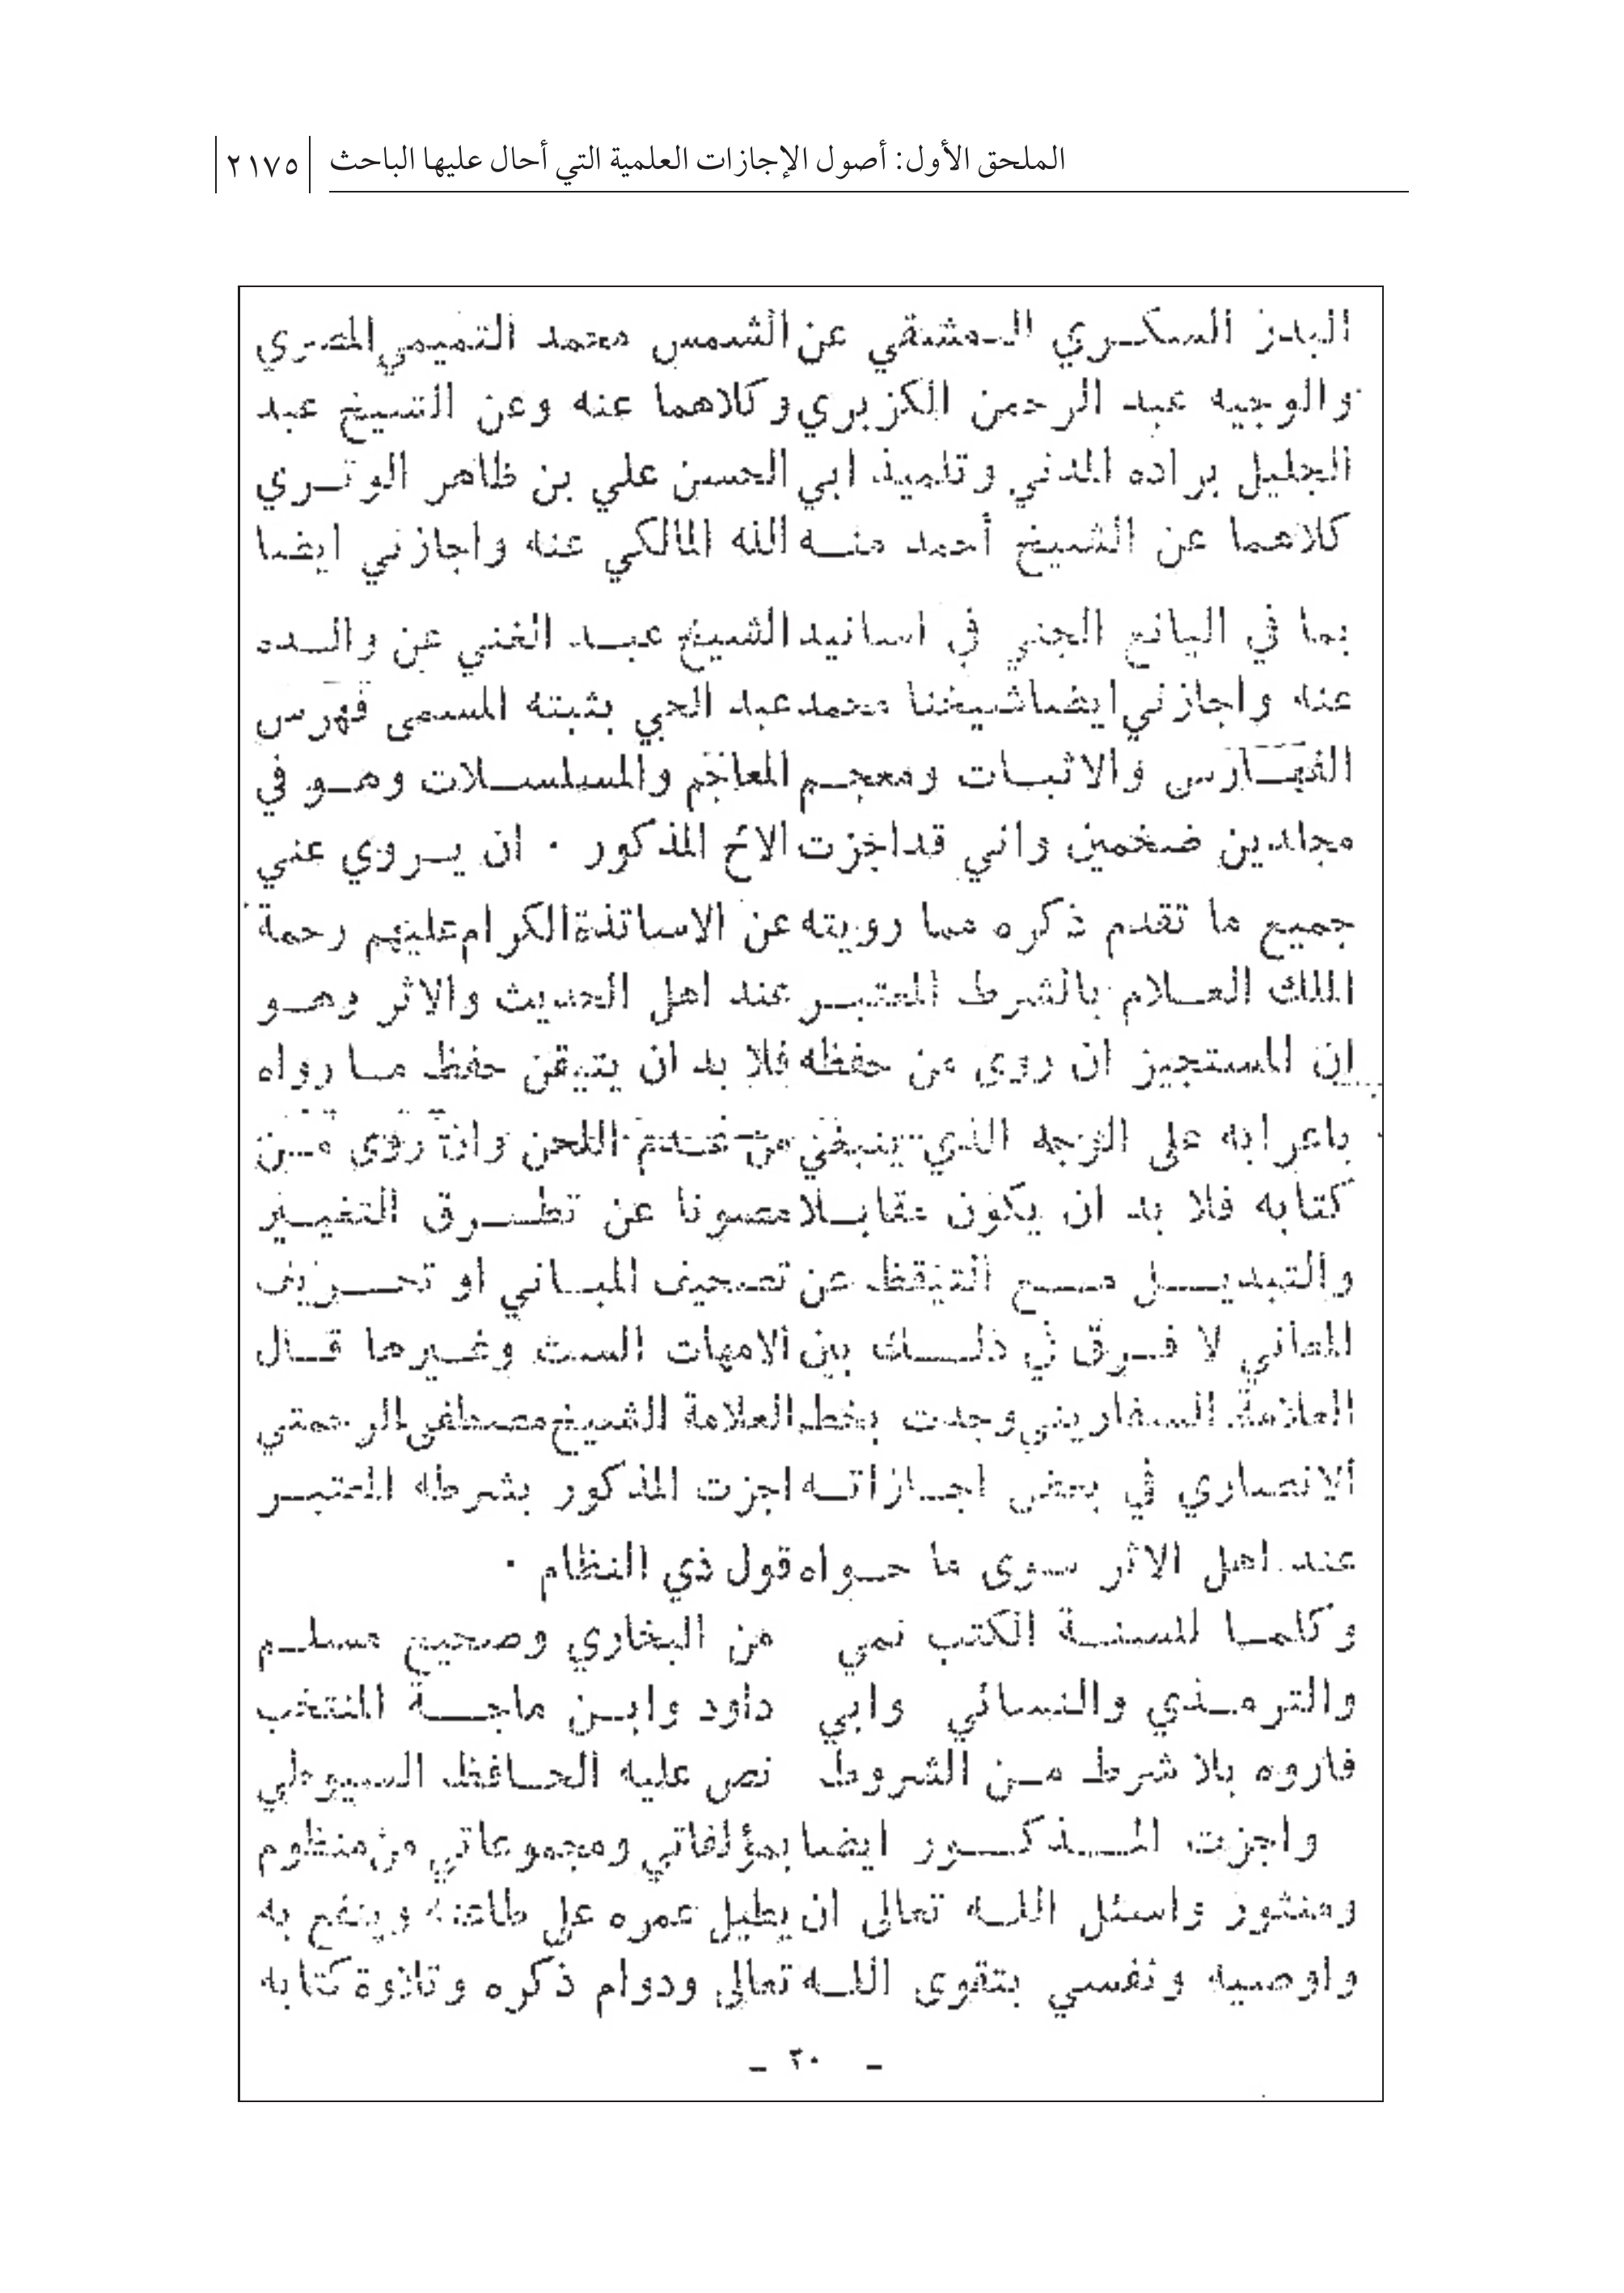 الملحق الأول: أصول الإجازات العلمية التي أحال عليها الباحث ٢١٧٥
البدر السكري الدمشقي عن الشمس محمد التميمي المصري
والوجيه عبد الرحمن الكزبري وكلاهما عنه وعن الشيخ عبد
الجليل براده المدني وتلميذ ابي الحسن علي بن ظاهر الوتري
كلاهما عن الشيخ أحمد منه الله المالكي عنه واجازني ايضا
بما في اليانع الجني في اسانيد الشيخ عبد الغني عن والده
عنه واجازني ايضا شيخنا محمد عبد الحي بثبته المسمى فهرس
الفهارس والاثبات ومعجم المعاجم والمسلسلات وهو في
مجلدين ضخمين واني قد اجزت الاخ المذكور . ان يروي عني
جميع ما تقدم ذكره مما رويته عن الاساتذة الكرام عليهم رحمة
الملك العلام بالشرط المعتبر عند اهل الحديث والاثر وهو
ان المستجيز ان روى من حفظه فلا بد ان يتيقن حفظ ما رواه
باعرابه على الوجه الذي ينبغي من عدم اللحن وان روى من
كتابه فلا بد ان يكون مقابلا مصونا عن تطرق التغيير
والتبديل مع التيقظ عن تصحيف المباني او تحريف
المعاني لا فرق في ذلك بين الامهات الست وغيرها قال
العلامة السفاريني وجدت بخط العلامة الشيخ مصطفى الرحمتي
الانصاري في بعض اجازاته اجزت المذكور بشرطه المعتبر
عند اهل الاثر سوى ما حواه قول ذي النظام .
وكلما للستة الكتب نمي من البخاري وصحيح مسلم
والترمذي والنسائي وابي داود وابن ماجة المنتخب
فاروه بلا شرط من الشروط نص عليه الحافظ السيوطي
واجزت المذكور ايضا بمؤلفاتي ومجموعاتي من منظوم
ومنثور واسئل الله تعالى ان يطيل عمره على طاعته وينفع به
واوصيه ونفسي بتقوى الله تعالى ودوام ذكره وتلاوة كتابه
- ٢٠ -